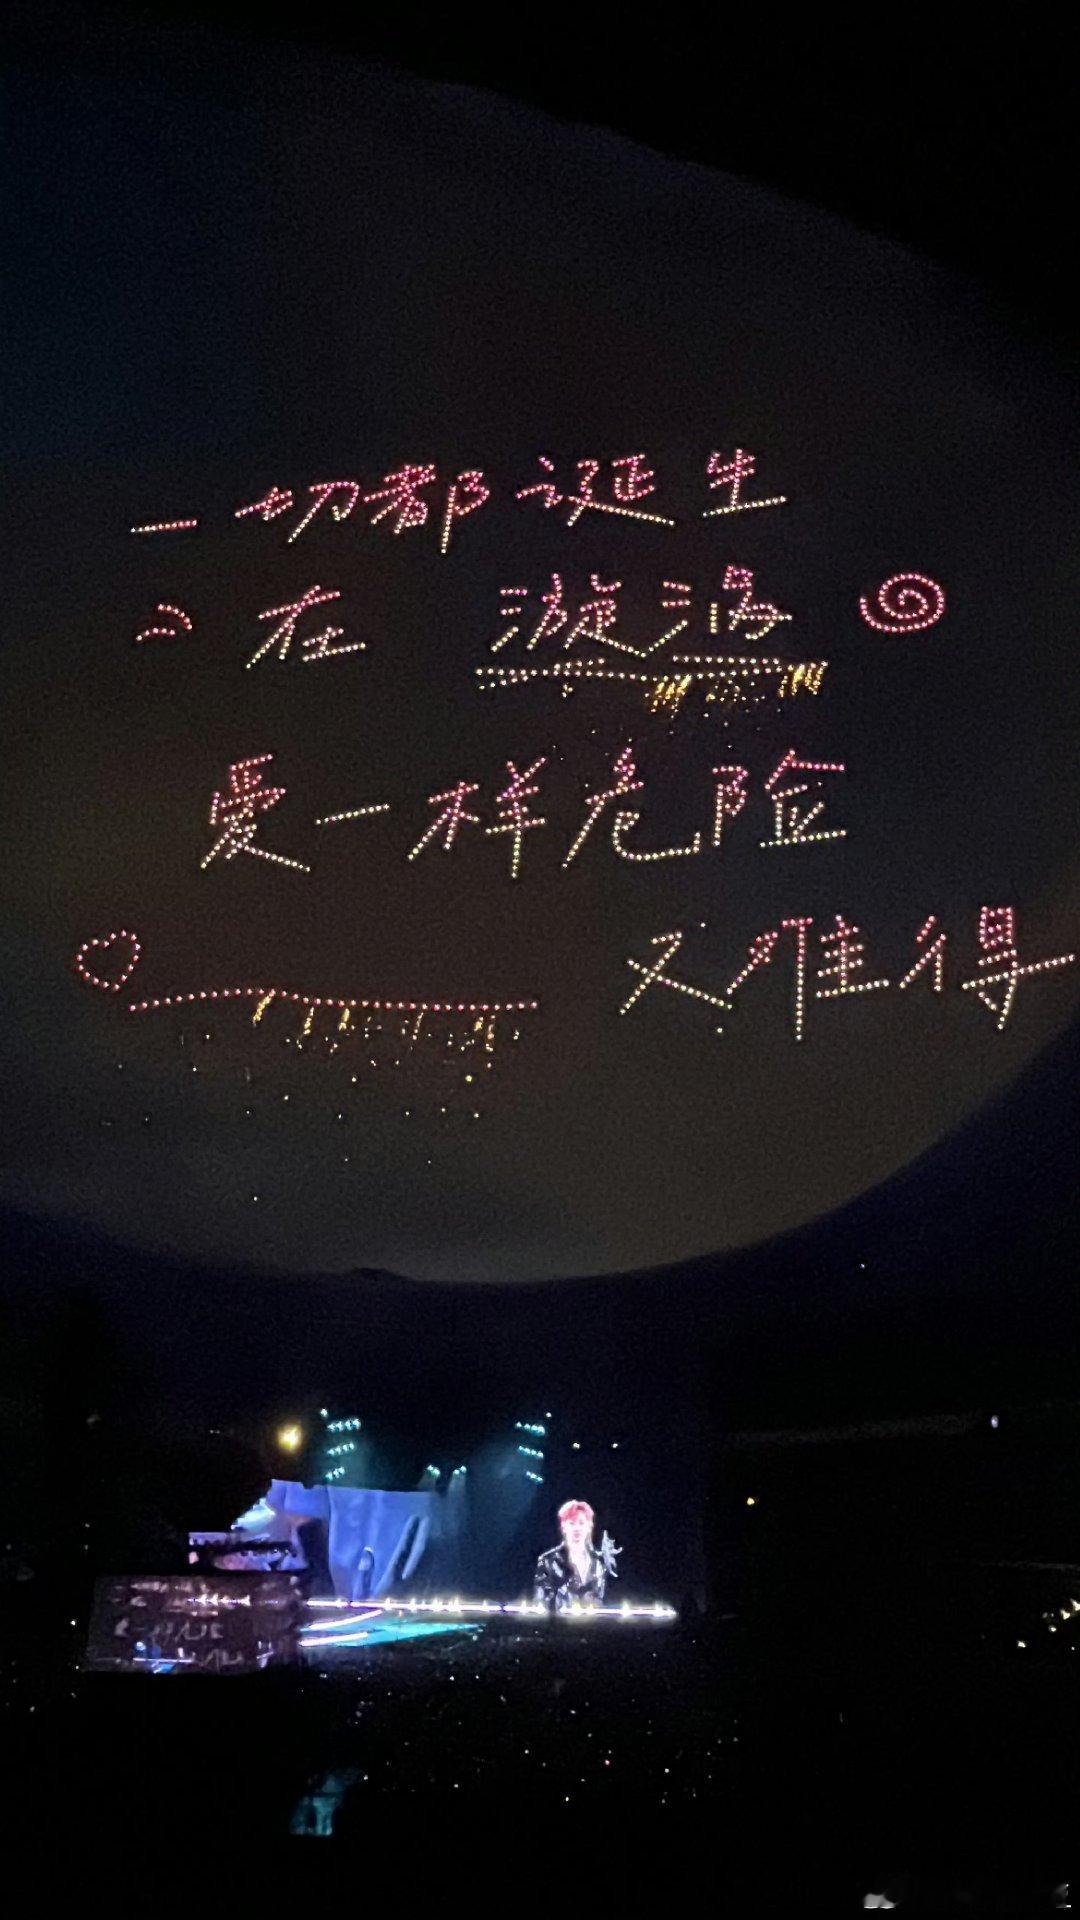 一切都诞生
在 漩涡
爱一样危险
又难得